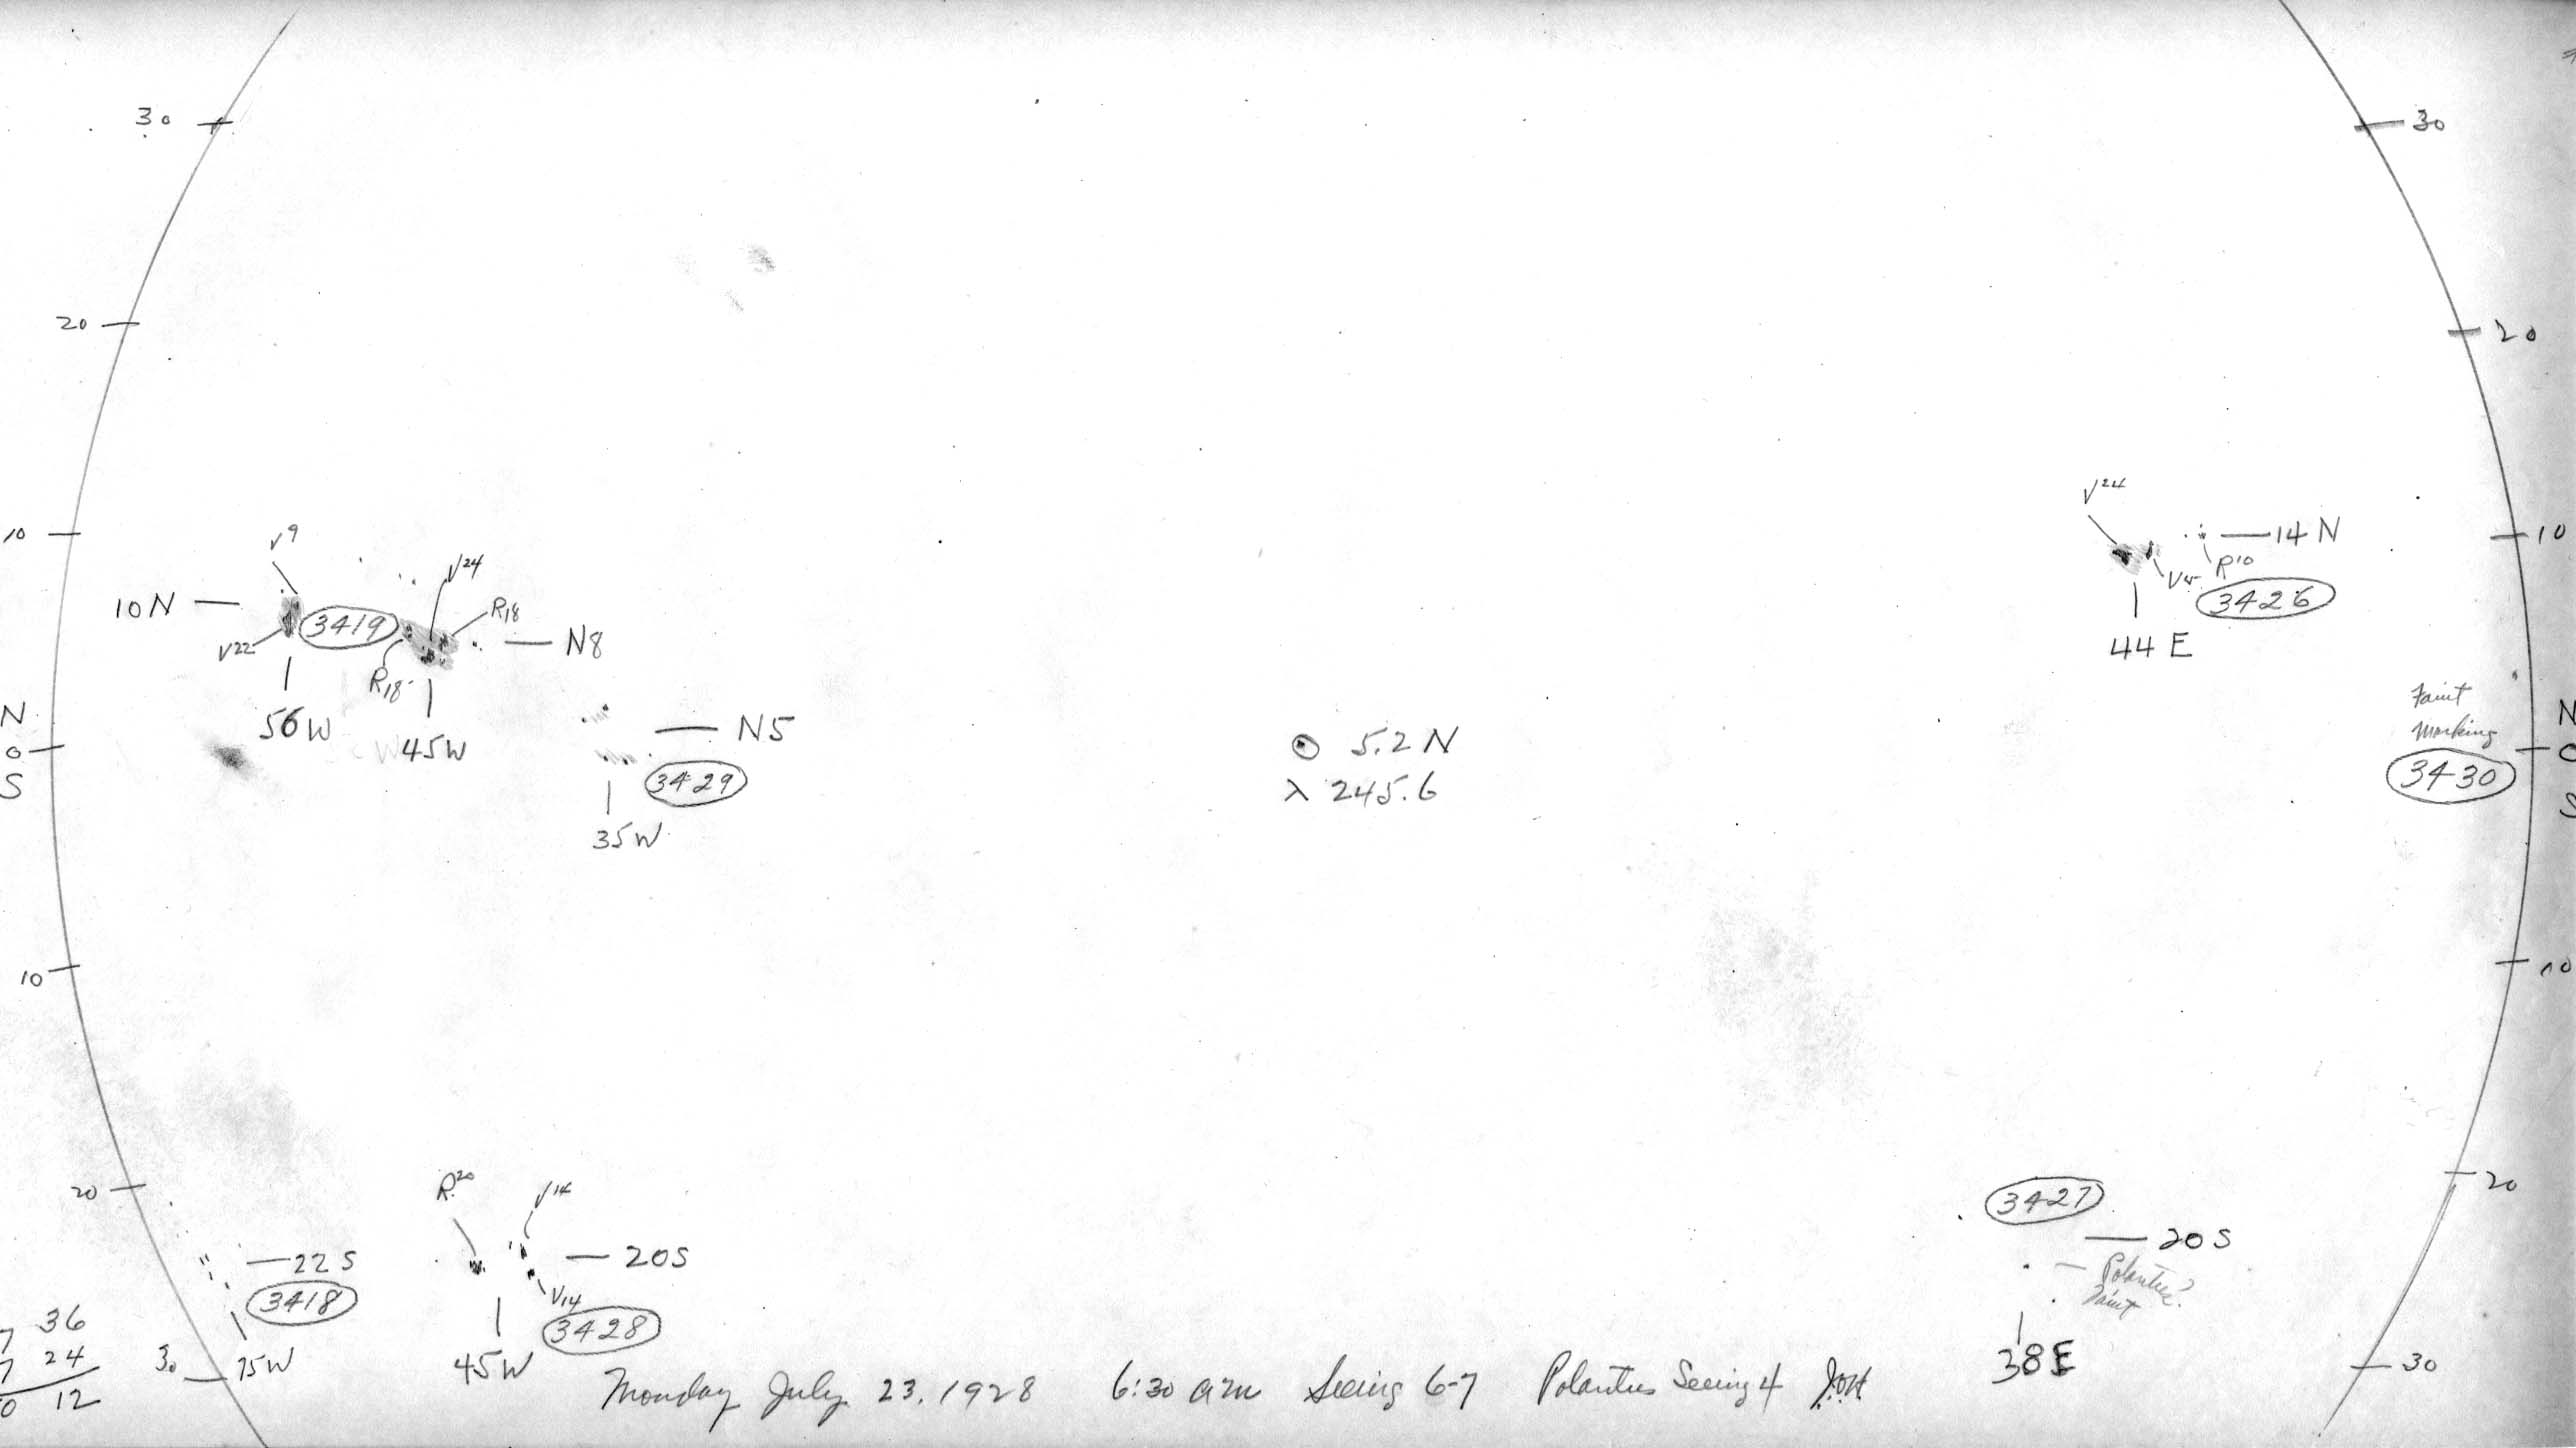 30
30
20
20
V24
10
V9
14 N
10
V24
R10
V5
10N
3419
R18
3426
V22
N8
44 E
R18
Faint
marking
56W
45W
N
N
N5
5.2 N
0
S
3429
3430
λ 245.6
35W
10
10
R20
V14
20
20
3427
22 S
20S
20 S
3418
V14
3428
Faint
36
24
12
30
75W
45W
38E
30
Monday July 23, 1928 6:30 am Seeing 6-7 Polarities Seeing 4